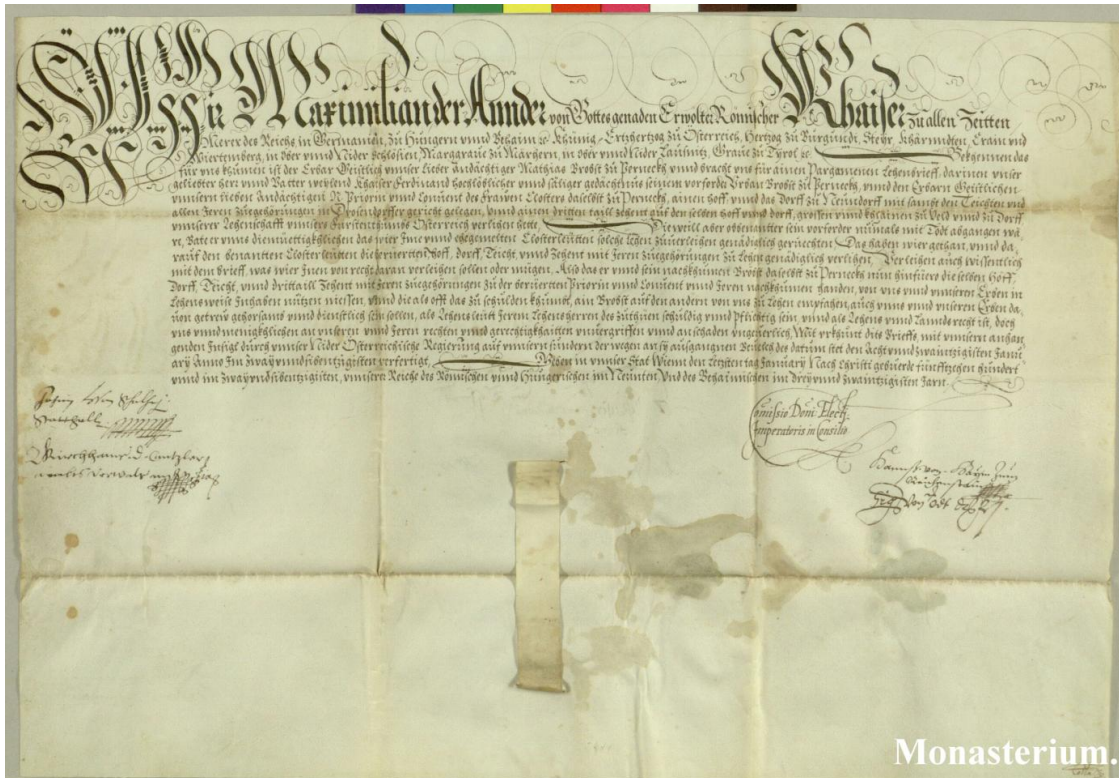 Wir Maximilian der Annder von Gottes genaden Erwölter Römischer Khaiser Zu allen Zeitten
Merer des Reichs in Germanien, zu Hungern vnnd Behaim ꝛc Khünig, Ertzhertzog zu Österreich, Hertzog zu Burgundt, Steyr, Khärndten, Crain vnd
Wiertemberg, in Ober vnnd Nider Schlesien, Marggraue zu Märhern, in Ober vnnd Nider Lausnitz, Graue zu Tyrol ꝛc Bekhennen das
für vns khumen ist der Erbar Geistlich vnnser lieber Andächtiger Mathias Brobst zu Perneckh vnnd bracht vns für ainen Pargamenen Lehenbrieff, darinen vnser
geliebster herr vnnd Vatter weylend Khaiser Ferdinand hochlöblicher vnnd säliger gedächtnus seinem vorforder Vrban Brobst zu Perneckh, vnnd den Erbarn Geistlichen
vnnsern lieben Andächtigen N Priorin vnnd Conuent des Frawen Closters daselbst zu Perneckh, ainen hoff, vnnd das Dorff zu Neundorff mit sambt den Teichten vnd
allen Jeren zuegehörungen in Drosendorffer gericht gelegen, vnnd ainen dritten taill zehent auf den selben hoff vnnd dorff, grossen vnnd khlainen zu Veld vnnd zu Dorff
vnnserer Lehenschafft vnnsers Fürstenthumbs Österreich verlihen hette, Dieweill aber obenannter sein vorforder nunmals mit Todt abgangen wä-
re, Bate er vnns diemüettigkhlichen das wier Ime vnnd ehegemelten Closterleütten solche Lehen zuuerleihen genädiclich geruechten, Das haben wier gethan, vnnd da-
rauf den benanten Closterleütten die berüertten hoff, dorff, Teicht, vnnd Zehent mit Jeren zuegehörungen zu Lehen genädiglich verlihen, Verleihen auch wissentlich
mit dem brieff, was wier Jnen von recht daran verleihen sollen oder mügen. Also das er vnnd sein nachkhumen Brobst daselbst zu Perneckh nun hinfüro die selben hoff,
Dorff, Teicht, vnnd drittaill Zehent mit Jeren zuegehörungen zu der berüerten Priorin vnnd Conuent vnnd Jeren nachkhumen handen, von vns vnnd vnnseren Erben in
Lehensweiß Innhaben nützen niessen, vnnd die als offt das zu schulden khumbt, ain Brobst auf den andern von vns zu Lehen emphahen, auch vnns vnnd vnnseren Erben da-
uon getrew gehorsamb vnnd dienstlich sein sollen, als Lehensleüt Jerem Lehensherren des zuthuen schuldig vnnd phlichtig sein, vnnd als Lehens vnnd Lannds recht ist, doch
vns vnnd menigkhlichen an vnseren vnnd Jeren rechten vnnd gerechtigkhaitten vnuergriffen vnnd an schaden vngeuerlich, Mit vrkhunt dits Brieffs, mit vnnserm anhan-
genden Insigl durch vnnser Nider Österreichische Regierung auf vnnsern sundern derwegen an sy ausgangnen Beuelch des datum stet den Acht vnnd zwaintzigisten Janu-
ary Anno Im Zway vnnd sibentzigisten verfertigt, Geben in vnnser Stat Wienn den Letzten tag January Nach Christi gebuerde fünfftzehen hundert
vnnd im zway vnd sibentzigisten, vnnserer Reiche des Römischen vnnd Hungerischen im Neunten, vnd des Behaimischen im drey vnnd zwaintzigisten Jarn.
Statthalter
Comissio Domi: Electi
Imperatoris in Consilio
Monasterium.